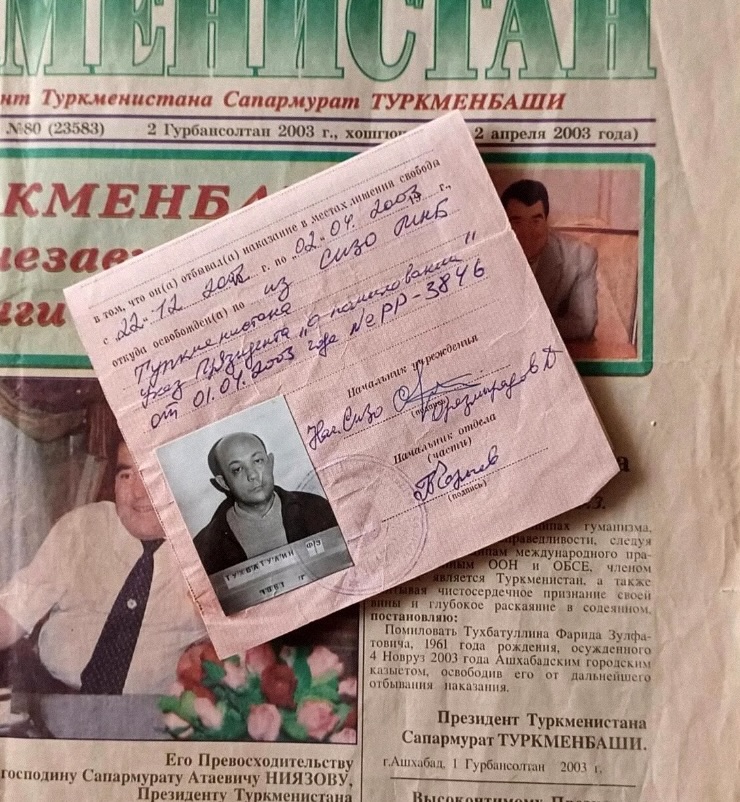 МЕНИСТАН
нт Туркменистана Сапармурат ТУРКМЕНБАШИ
№80 (23583) 2 Гурбансолтан 2003 г., 2 апреля 2003 года)
КМЕНБА
незав
иги
в том, что он(а) отбывал(а) наказание в местах лишения свободы
с 22.12 2002 г. по 02.04.2003 г.,
откуда освобожден(а) по из СИЗО МНБ
Туркменистана
указ Президента "о помиловании"
от 01.04.2003 года № РР-3846
Начальник учреждения
Нач. СИЗО
(подпись)
Начальник отдела
(части)
(подпись)
ТУХБАТУЛЛИН Ф/З
1961 г
а
ипах гуманизма,
раведливости, следуя
ипам международного пра-
ным ООН и ОБСЕ, членом
является Туркменистан, а также
тывая чистосердечное признание своей
вины и глубокое раскаяние в содеянном,
постановляю:
Помиловать Тухбатуллина Фарида Зулфа-
товича, 1961 года рождения, осужденного
4 Новруз 2003 года Ашхабадским городским
казыетом, освободив его от дальнейшего
отбывания наказания.
Президент Туркменистана
Сапармурат ТУРКМЕНБАШИ.
г.Ашхабад, 1 Гурбансолтан 2003 г.
Его Превосходительству
господину Сапармурату Атаевичу НИЯЗОВУ,
Президенту Туркменистана